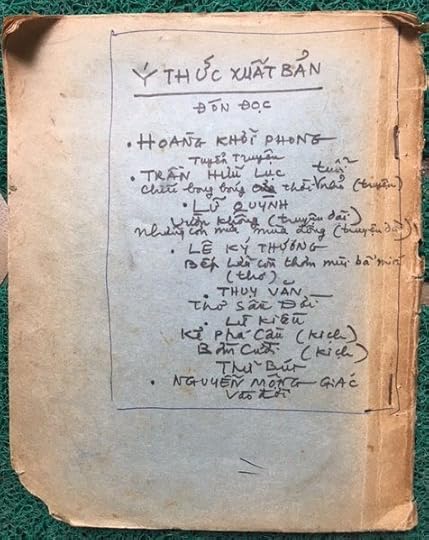 Ý THỨC XUẤT BẢN
ĐÓN ĐỌC
• HOÀNG KHỞI PHONG
Tuyển Truyện
• TRẦN HỮU LỤC
Chiếc bong bóng của thời tuổi nhỏ (truyện)
• LỮ QUỲNH
Vườn không (truyện dài)
Những cơn mưa mùa đông (truyện dài)
• LÊ KÝ THƯƠNG
Bếp lửa còn thơm mùi bã mía
(thơ)
• THỤY VÂN
Thơ Sân Đồi
• LỮ KIỀU
Kẻ Phá Cầu (kịch)
Bốn Cười (kịch)
Thư Bút
• NGUYỄN MỘNG GIÁC
Vào đời